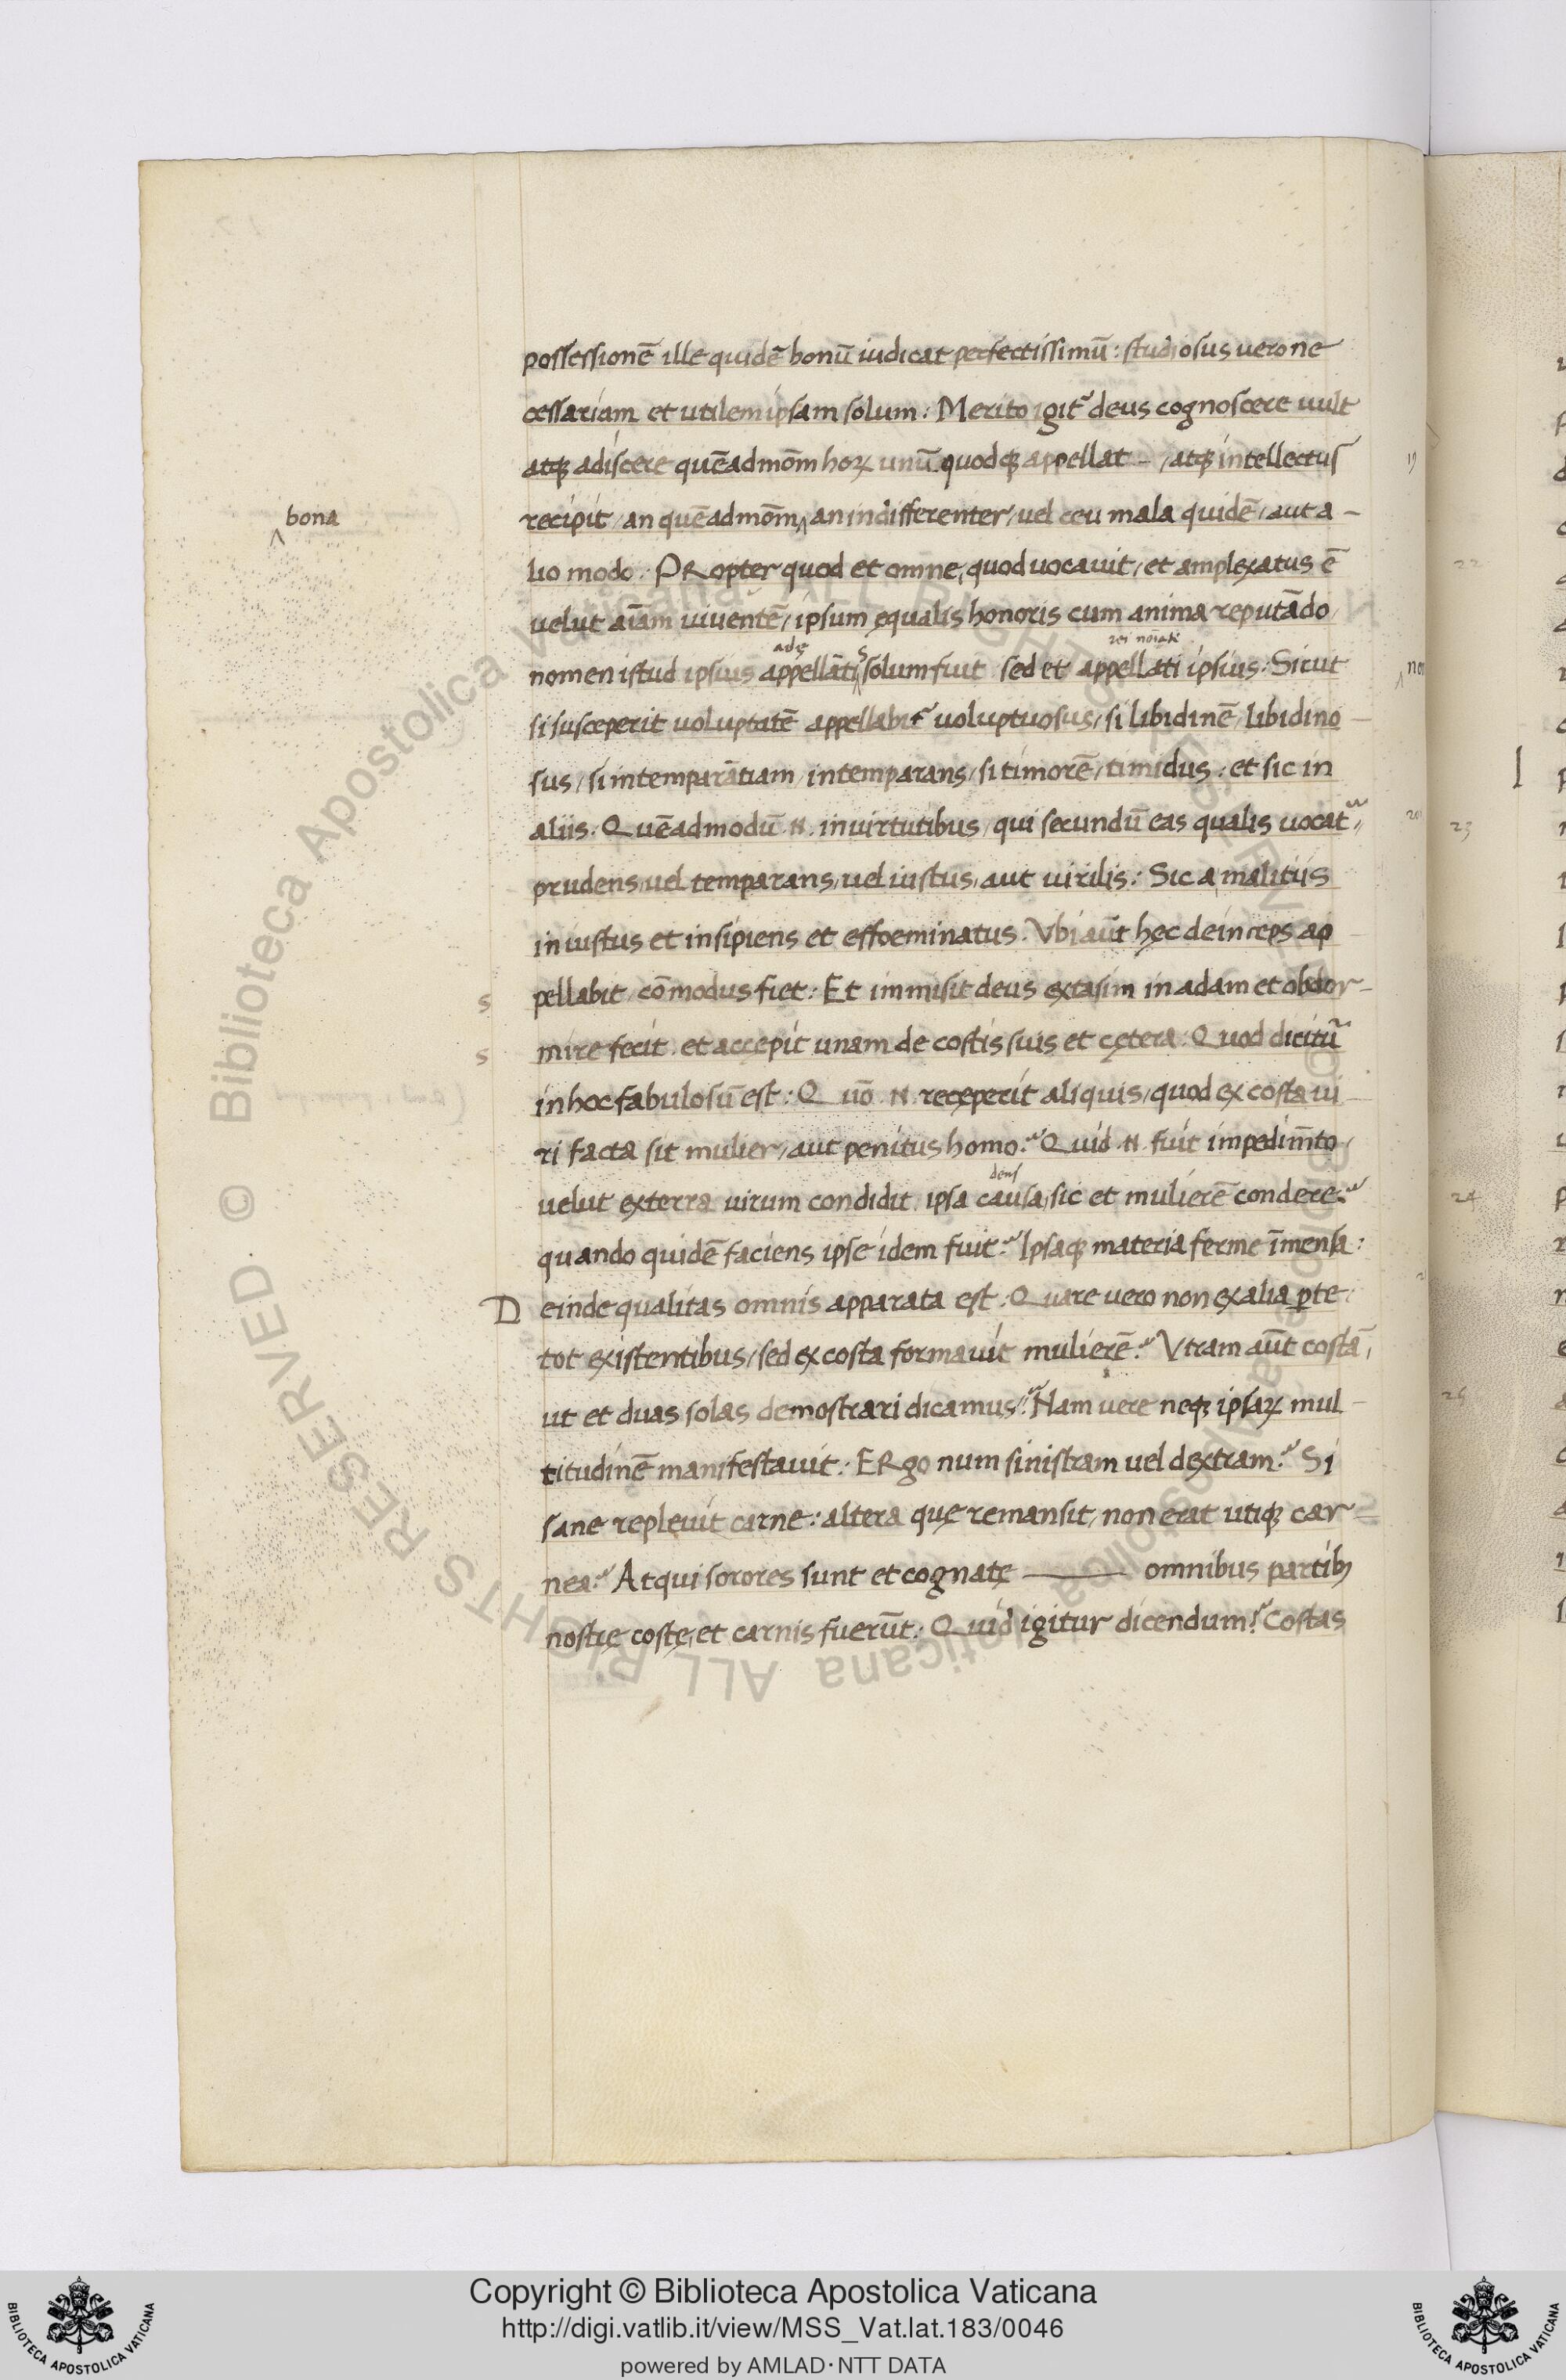 possessionē ille quidē bonū iudicat perfectissimū: studiosus uero ne
cessariam et utilem ipsam solum: Merito igit᷑ deus cognoscere uult
atqꝫ adiscere quēadmōm hoꝝ unū quodqꝫ appellat – / atqꝫ intellectus
bona
recipit / an quēadmōm ‸ an indifferenter / uel ceu mala quidē / aut a –
lio modo: PRopter quod et omne, quod uocauit / et amplexatus ē
uelut aīam uiuentē / ipsum ęqualis honoris cum anima reputādo
adę
nomen istud ipsius appellāti solum fuit sed et appellati ipsius: Sicut
si susceperit uoluptatē appellabit᷑ uoluptuosus / si libidinē / libidino
sus / si intemparātiam / intemparans / si timorē / timidus: et sic in
aliis. Quēadmodū .N. in uirtutibus / qui secundū eas qualis uocat᷑
prudens / uel temparans / uel iustus / aut uirilis: Sic a malitiis
iniustus et insipiens et effoeminatus. Vbi aūt hęc deinceps ap
s pellabit / cōmodus fiet: Et immisit deus extasim in adam et obdor –
s mire fecit. et accepit unam de costis suis et cętera: Quod dicitu᷑
in hoc fabulosū est: Quō .N. receperit aliquis / quod ex costa ui
ri facta sit mulier / aut penitus homo? Quid .N. fuit impedim̄to /
deus
uelut ex terra uirum condidit ipsa causa, sic et mulierē condere?
quando quidē faciens ipse idem fuit? Ipsaqꝫ materia ferme īmensa:
Deinde qualitas omnis apparata est: Quare uero non ex alia ꝑte
tot existentibus / sed ex costa formauit mulierē? Vtram aūt costā,
ut et duas solas demostrari dicamus? Nam uere neqꝫ ipsaꝝ mul –
titudinē manifestauit: ERgo num sinistram uel dextram? Si
sane repleuit carne: altera quę remansit, non erat utiqꝫ car –
nea? Atqui sorores sunt et cognatę —— omnibus partibꝫ
nostrę costę, et carnis fuerūt: Quid igitur dicendum? Costas
19
22
23
24
26
Copyright © Biblioteca Apostolica Vaticana
http://digi.vatlib.it/view/MSS_Vat.lat.183/0046
powered by AMLAD·NTT DATA
BIBLIOTECA APOSTOLICA VATICANA
BIBLIOTECA APOSTOLICA VATICANA
© Biblioteca Apostolica Vaticana ALL RIGHTS RESERVED.